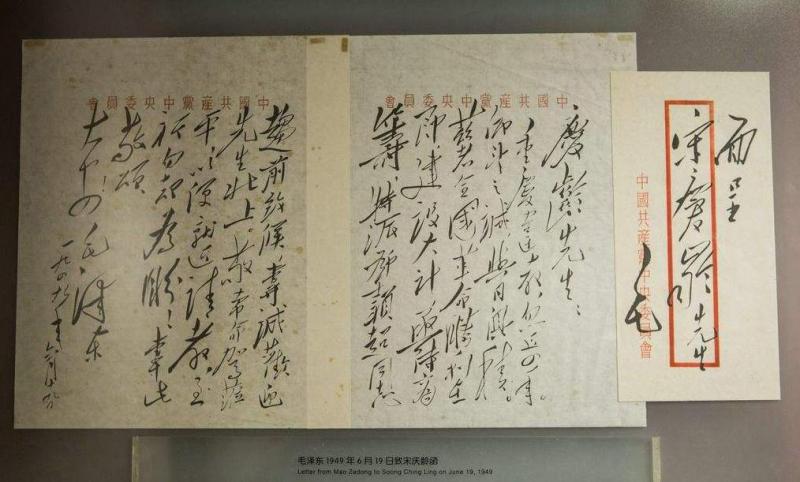 中國共産黨中央委員會
慶齡先生：
重慶違教，忽近四年。
仰望之誠，與日俱積。
兹者全國革命勝利在
即，建設大計，亟待商
籌，特派鄧穎超同志
中國共産黨中央委員會
趨前致候，專誠歡迎
先生北上。敬希命駕蒞
平，以便就近請教，至
祈勿却為盼！專此
敬頌
大安！毛澤東
一九四九年六月十九日
面呈
宋慶齡先生
毛
中國共産黨中央委員會
毛泽东1949年6月19日致宋庆龄函
Letter from Mao Zedong to Soong Ching Ling on June 19, 1949